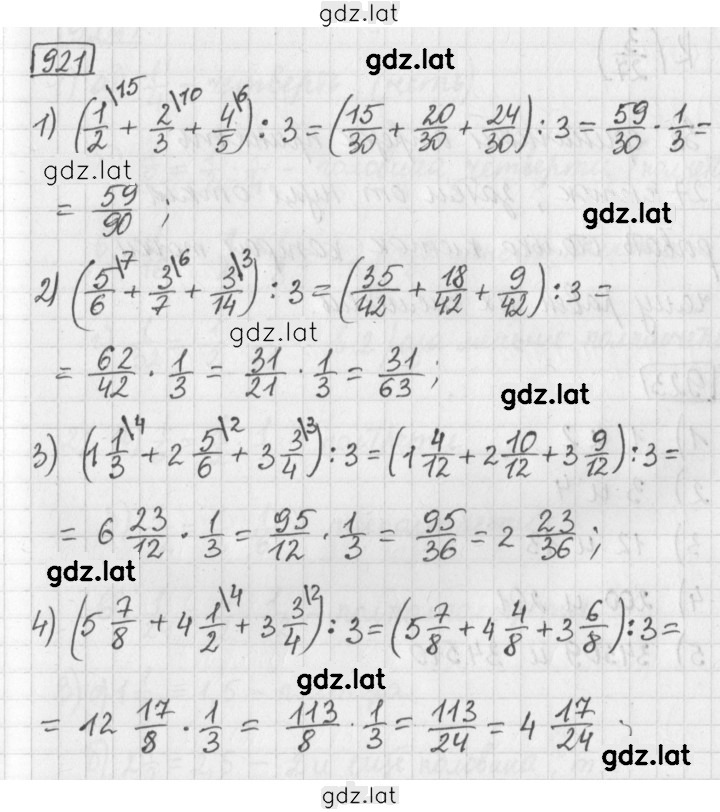 gdz.lat
921
gdz.lat
1) (1/2\15 + 2/3\10 + 4/5\6) : 3 = (15/30 + 20/30 + 24/30) : 3 = 59/30 · 1/3 =
gdz.lat
= 59/90 ;
gdz.lat
2) (5/6\7 + 3/7\6 + 3/14\3) : 3 = (35/42 + 18/42 + 9/42) : 3 =
gdz.lat
= 62/42 · 1/3 = 31/21 · 1/3 = 31/63 ;
gdz.lat
3) (1 1/3\4 + 2 5/6\2 + 3 3/4\3) : 3 = (1 4/12 + 2 10/12 + 3 9/12) : 3 =
= 6 23/12 · 1/3 = 95/12 · 1/3 = 95/36 = 2 23/36 ;
gdz.lat
4) (5 7/8 + 4 1/2\4 + 3 3/4\2) : 3 = (5 7/8 + 4 4/8 + 3 6/8) : 3 =
gdz.lat
= 12 17/8 · 1/3 = 113/8 · 1/3 = 113/24 = 4 17/24 ;
gdz.lat
gdz.lat